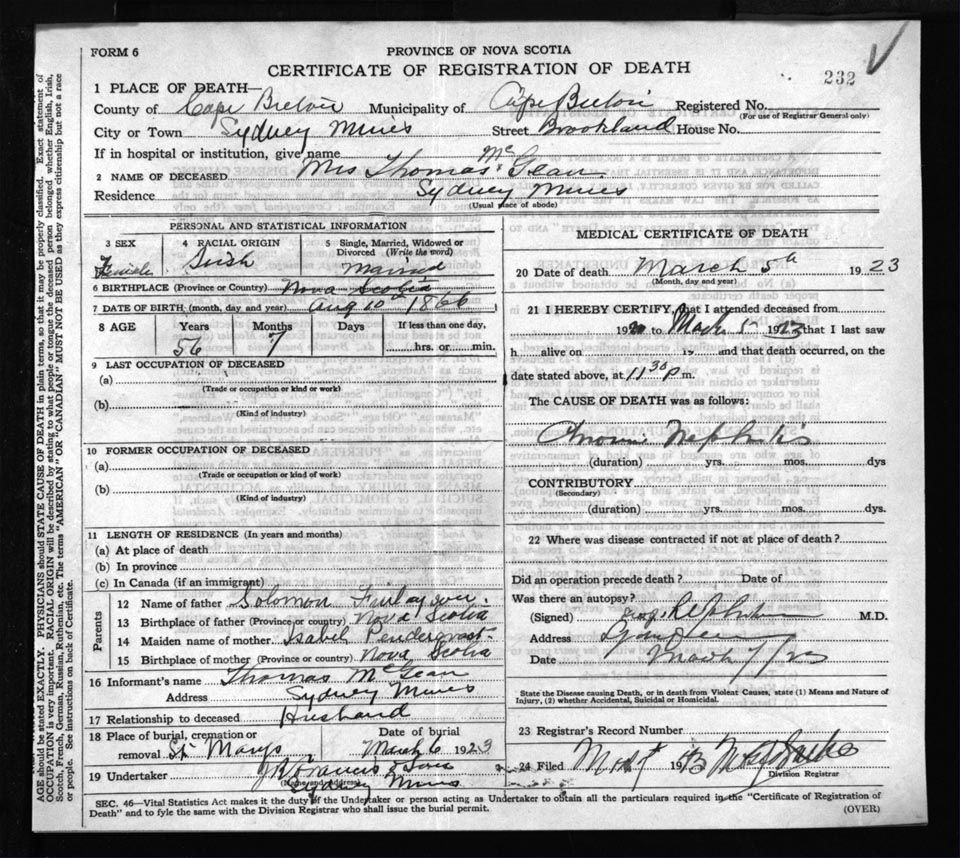 FORM 6
PROVINCE OF NOVA SCOTIA
CERTIFICATE OF REGISTRATION OF DEATH
232
1 PLACE OF DEATH—
County of Cape Breton Municipality of Cape Breton Registered No.
(For use of Registrar General only)
City or Town Sydney Mines Street Brookland House No.
If in hospital or institution, give name
2 NAME OF DECEASED Mrs Thomas McLean
Residence Sydney Mines
(Usual place of abode)
PERSONAL AND STATISTICAL INFORMATION
3 SEX 4 RACIAL ORIGIN 5 Single, Married, Widowed or Divorced (Write the word)
Female Irish Married
6 BIRTHPLACE (Province or Country) Nova Scotia
7 DATE OF BIRTH (month, day and year) Aug 10th 1866
8 AGE Years Months Days If less than one day,
56 7 hrs. or min.
9 LAST OCCUPATION OF DECEASED
(a)
(Trade or occupation or kind or work)
(b)
(Kind of industry)
10 FORMER OCCUPATION OF DECEASED
(a)
(Trade or occupation or kind of work)
(b)
(Kind of industry)
11 LENGTH OF RESIDENCE (In years and months)
(a) At place of death
(b) In province
(c) In Canada (if an immigrant)
Parents
12 Name of father Solomon Finlayson
13 Birthplace of father (Province or country) Nova Scotia
14 Maiden name of mother Isabel Pendergrast
15 Birthplace of mother (Province or country) Nova Scotia
16 Informant's name Thomas McLean
Address Sydney Mines
17 Relationship to deceased Husband
18 Place of burial, cremation or Date of burial
removal St Marys March 6 1923
19 Undertaker Francis & Sons
(Name and address)
Sydney Mines
MEDICAL CERTIFICATE OF DEATH
20 Date of death March 5th 1923
(Month, day and year)
21 I HEREBY CERTIFY, that I attended deceased from
192 to 1923 that I last saw
h alive on 19 and that death occurred, on the
date stated above, at 11 30 p m.
The CAUSE OF DEATH was as follows:
Chronic Nephritis
(duration) yrs. mos. dys
CONTRIBUTORY
(Secondary)
(duration) yrs. mos. dys.
22 Where was disease contracted if not at place of death?
Did an operation precede death? Date of
Was there an autopsy?
(Signed) M.D.
Address
Date March 7/23
State the Disease causing Death, or in death from Violent Causes, state (1) Means and Nature of
Injury, (2) whether Accidental, Suicidal or Homicidal.
23 Registrar's Record Number
24 Filed 19
Division Registrar
SEC. 46—Vital Statistics Act makes it the duty of the Undertaker or person acting as Undertaker to obtain all the particulars required in the "Certificate of Registration of
Death" and to fyle the same with the Division Registrar who shall issue the burial permit.
(OVER)
AGE should be stated EXACTLY. PHYSICIANS should STATE CAUSE OF DEATH in plain terms, so that it may be properly classified. Exact statement of
OCCUPATION is very important. RACIAL ORIGIN will be described by stating to what people or tongue the deceased person belonged whether English, Irish,
Scotch, French, German, Russian, Ruthenian, etc. The terms "AMERICAN" OR "CANADIAN" MUST NOT BE USED as they express citizenship but not a race
or people. See instructions on back of Certificate.